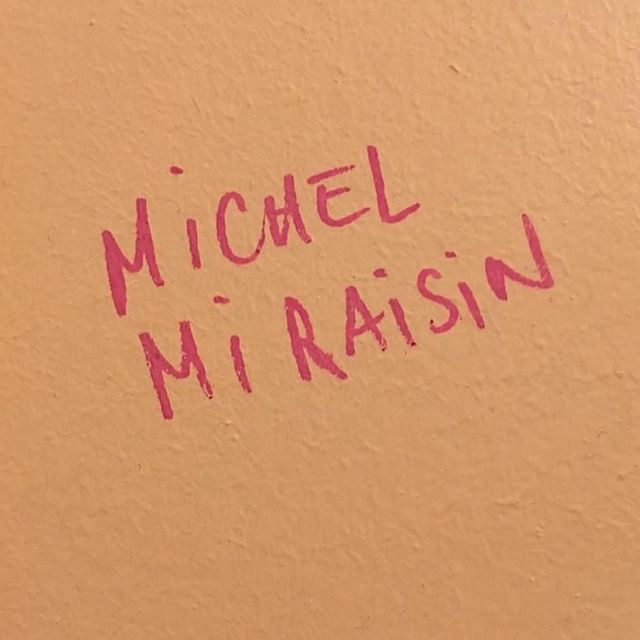 MiCHEL
Mi RAiSiN